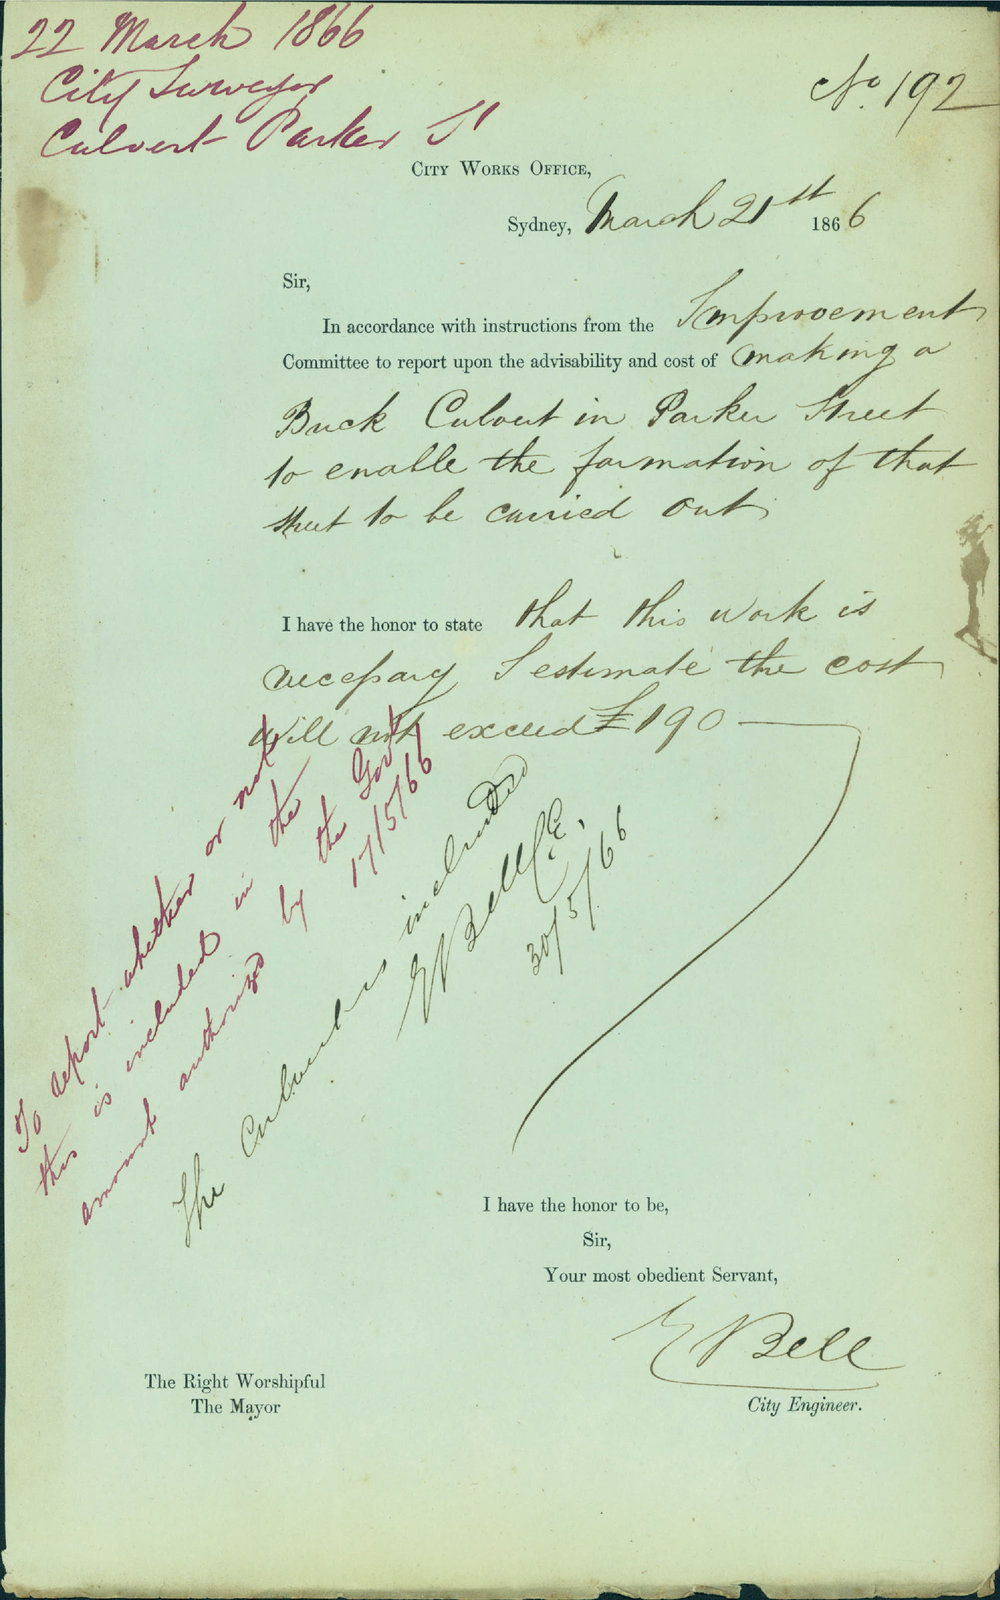 22 March 1866
City Surveyor
Culvert Parker St
No. 192
City Works Office,
Sydney, March 21st 1866
Sir,
In accordance with instructions from the Improvement
Committee to report upon the advisability and cost of making a
Brick Culvert in Parker Street
to enable the formation of that
street to be carried out
I have the honor to state that this work is
necessary I estimate the cost
will not exceed £190
To report whether or not
this is included in the
amount authorized by the Govt
17/5/66
The Culvert is included
E Bell C.E.
30/5/66
I have the honor to be,
Sir,
Your most obedient Servant,
E Bell
City Engineer.
The Right Worshipful
The Mayor